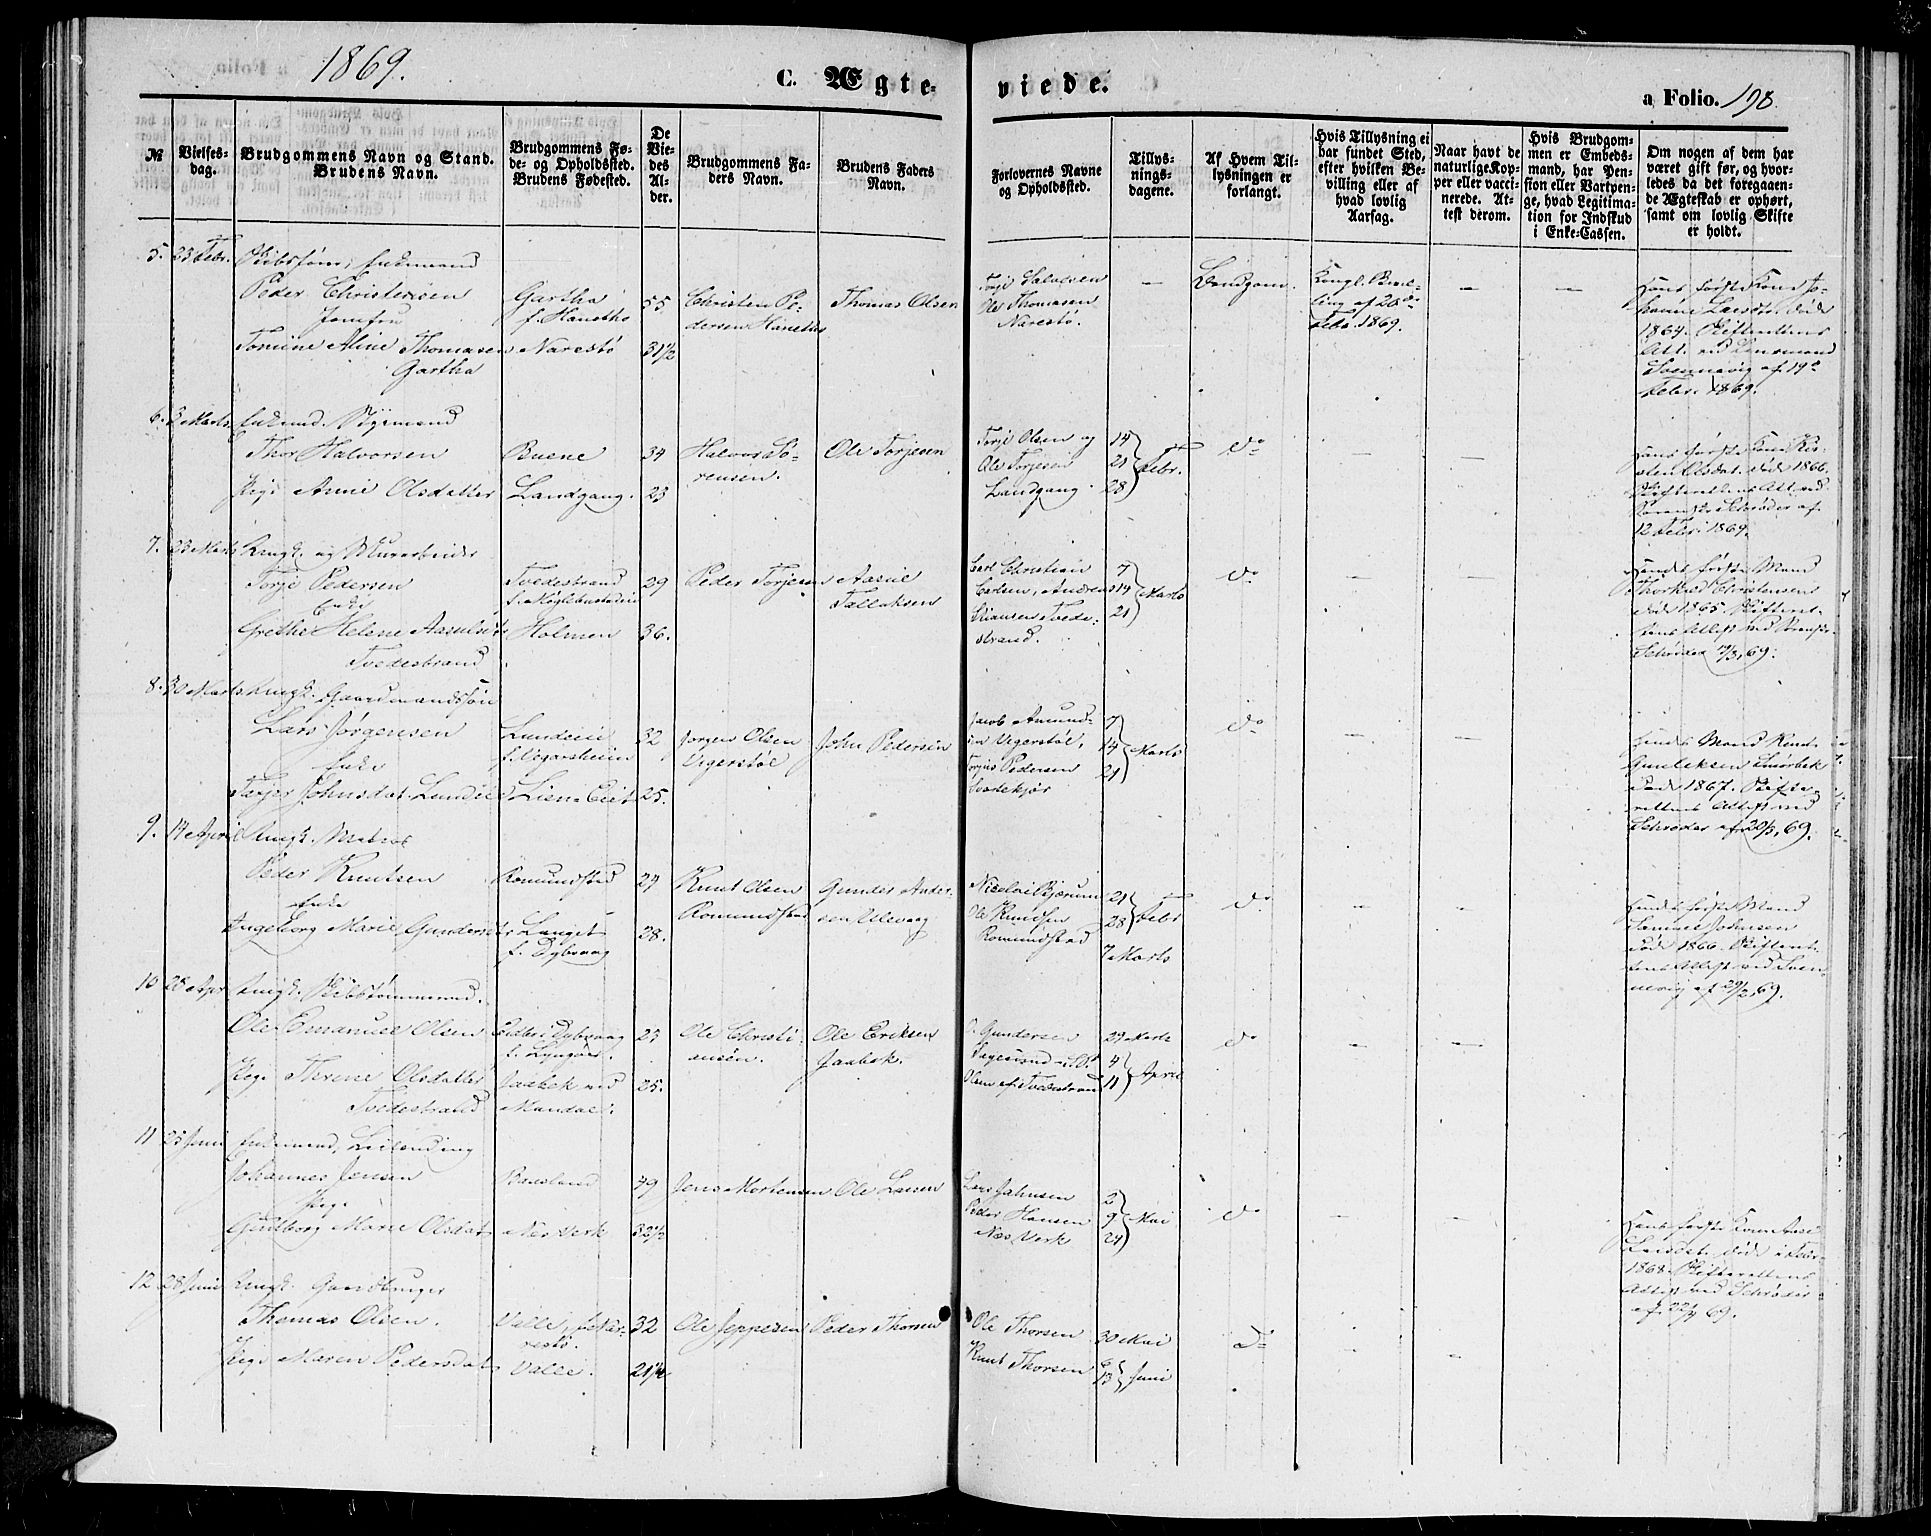 1869.
C. Ægte-
viede.
a Folio. 198
№
Vielses-
dag.
Brudgommens Navn og Stand.
Brudens Navn.
Brudgommens Fø-
de- og Opholdssted.
Brudens Fødested.
De
Vie-
des
Al-
der.
Brudgommens Fa-
ders Navn.
Brudens Faders
Navn.
Forlovernes Navne
og Opholdssted.
Tillys-
nings-
dagene.
Af Hvem Til-
lysningen er
forlangt.
Hvis Tillysning ei
har fundet Sted,
efter hvilken Be-
villing eller af
hvad lovlig
Aarsag.
Naar havt de
naturlige Kop-
per eller vacci-
nerede. At-
test derom.
Hvis Brudgom-
men er Embeds-
mand, har Pen-
sion eller Vartpen-
ge, hvad Legitima-
tion for Indskud
i Enke-Cassen.
Om nogen af dem har
været gift før, og hvor-
ledes da det foregaaen-
de Ægteskab er ophørt,
samt om lovlig Skifte
er holdt.
5. 23 Febr. Skibsfører, Enkemand
Peder Christensen
Jomfru
Tomine Aline Thomasen
Gartha
Gartha
f. Hanetho
Narestø
55.
31½
Christen Pe-
dersen Hanetho
Thomas Olsen
Torje Halvorsen
Ole Thomasen
Narestø.
Brudgom.
Kongl. Bevil-
ling af 20de
Febr. 1869.
Hans første Kone Jo-
hanne Larsdtr. død
1864. Skifterettens
Att. ved Lensmand
Svennevig af 19de
Febr. 1869.
6. 3 Marts. Enkemd. Bygmand
Thor Halvorsen
Pige Anne Olsdatter
Buene
Landgang.
34
23
Halvor Sø-
rensen.
Ole Torjesen
Torje Olsen og
Ole Torjesen
Landgang.
14
21
28
Febr.
do
Hans første Kone Kir-
sten Olsdat. død 1866.
Skifterettens Att. ved
Sorenskr. Schrøder af
12 Febr. 1869.
7. 23 Marts Ungk. og Murarbeider
Torje Pedersen
Enke
Grethe Helene Aasulsdt
Tvedestrand
Tvedestrand
f. Møglebustadeie
Holmen
29
36.
Peder Torjesen
Aasul
Tallaksen
Carl Christian
Carlsen, Andreas
Stiansen Tvede-
strand.
7
14
21
Marts
do
Hendes første Mand
Thorkild Christensen
død 1865. Skifteret-
tens Attest ved Sorenskr.
Schrøder 19/3, 69.
8. 30 Marts Ungk. Gaardmandssøn
Lars Jørgensen
Enke
Tarjer Johnsdat. Lundeie
Lundeie
f. Vegarsheien
Lien Eiet
32
25.
Jørgen Olsen
Vigerstøl
John Pedersen
Jacob Amund-
sen Vegerstøl,
Torjus Pedersen
7
14
21
Marts
do
Hendes Mand Knut
Gunleksen Smørbek
død 1867. Skifte-
rettens Attest ved
Schrøder af 20/3, 69.
9. 14 April Ungk. Matros
Peder Knutsen
Enke
Ingeborg Marie Gundersdt
Romundstad
Langet
f. Dybvaag
24
28.
Knut Olsen
Romundstad
Gunder Ander-
sen Ulevaag
Nicolai Bjærum
Ole Knudsen
Romundstad
21
28
Febr
7 Marts
do
Hendes første Mand
Samuel Johnsen
død 1866. Skifteret-
tens Attest ved Sven-
nevig af 29/2, 69.
10 28 Apr Ungk. Skibstømmermd.
Ole Emanuel Olsen
Pige Therene Olsdatter
Tvedestrand
Eidbo i Dybvaag
f. Lyngør.
Jaabek ved
Mandal.
23
25.
Ole Christi-
ansen.
Ole Eriksen
Jaabek.
O. Gundersen
Sagesund
Olsen af Tvedestrand
29 Marts
4
11
April
do
11 25 Juni Enkemand, Leilending
Johannes Jensen
Pige
Gudborg Marie Olsdat
Baasland
Nes Verk
49
32½
Jens Mortensen
Ole Larsen
Lars Jahnsen
Peder Hansen
Næs Verk
2
9
24
Mai
do
Hans første Kone Anne
Larsdat. døde i Febr
1868. Skifterettens
Attest ved Schrøder
af 22/4 69.
12 28 Juni Ungk. Gaardbruger
Thomas Olsen.
Pige Maren Pedersdat
Valle, f. Nar-
restø.
Valle.
32
21¼
Ole Jeppesen
Peder Thorsen
Ole Thorsen
Knut Thorsen
30 Mai
6
13
Juni
do